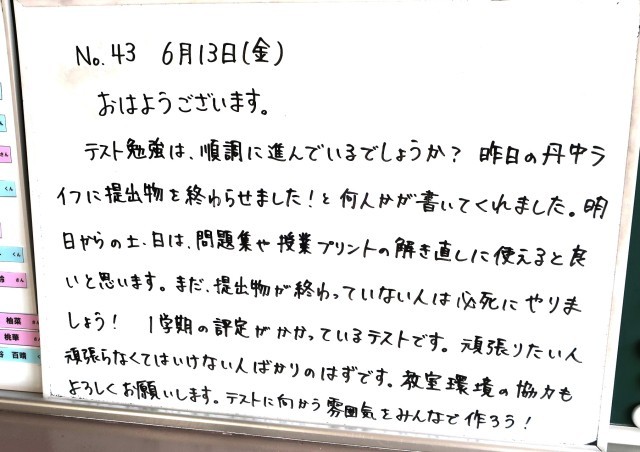 No. 43 6月13日(金)
おはようございます。
テスト勉強は、順調に進んでいるでしょうか？ 昨日の丹中ラ
イフに提出物を終わらせました！と何人かが書いてくれました。明
日からの土、日は、問題集や授業プリントの解き直しに使えると良
いと思います。まだ、提出物が終わっていない人は必死にやりま
しょう！ 1学期の評定がかかっているテストです。頑張りたい人
頑張らなくてはいけない人ばかりのはずです。教室環境の協力も
よろしくお願いします。テストに向かう雰囲気をみんなで作ろう！
さん
くん
くん
さん
柚菜
桃華
百晴